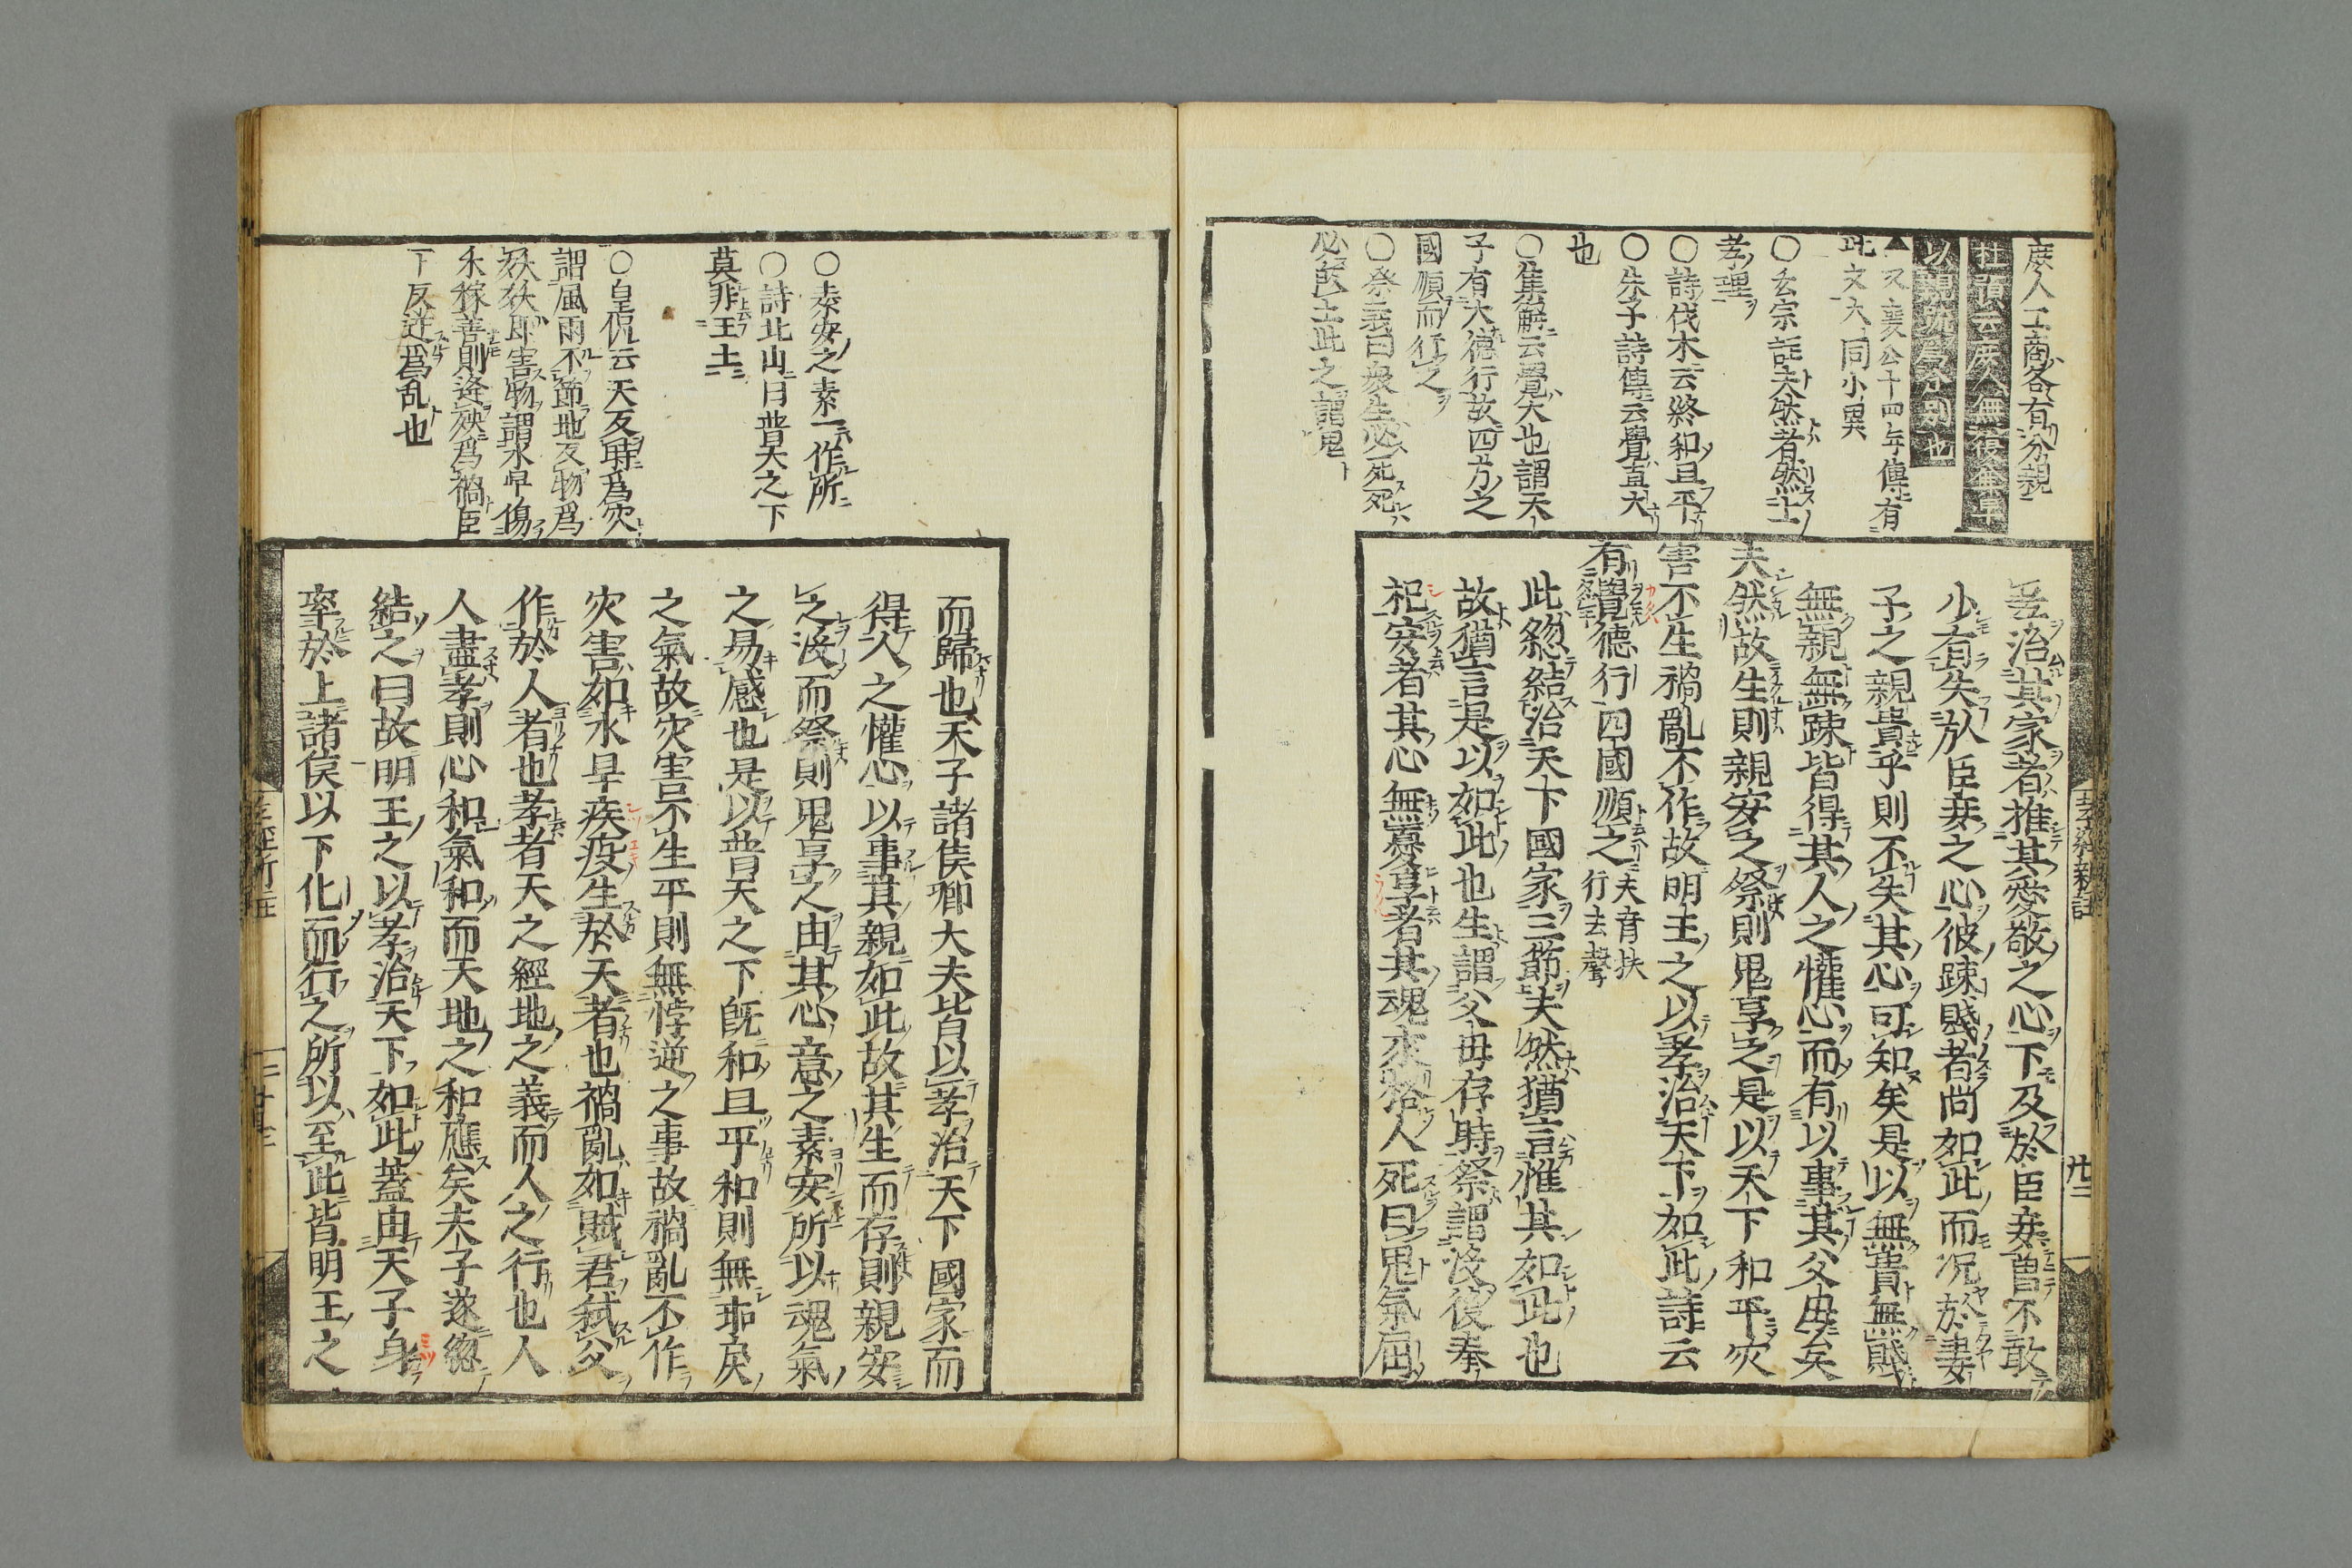 庶人工商各有分親
杜預云庶人無復尊卑
以親疏爲分別也
▲又襄公十四年傳有
此文大同小異
○玄宗註夫然者然上
孝理
○詩伐木云終和且平
○朱子詩傳云覺直大
也
○集解云覺大也謂天
子有大德行故四方之
國順而行之
○祭義曰衆生必死死
必歸土此之謂鬼
治其家者推其愛敬之心下及於臣妾曽不敢
少有失於臣妾之心彼踈賤者尚如此而况於妻
子之親貴乎則不失其心可知矣是以無貴無賤
無親無踈皆得其人之懽心而有以事其父母矣
夫然故生則親安之祭則鬼享之是以天下和平灾
害不生禍亂不作故明王之以孝治天下如此詩云
有覺德行四國順之夫音扶行去聲
此緫結治天下國家三節夫然猶言惟其如此也
故猶言是以如此也生謂父母存時祭謂沒後奉
祀安者其心無憂享者其魂來格人死曰鬼氣屈
孝經新註
廿二
而歸也天子諸侯卿大夫皆以孝治天下國家而
得人之懽心以事其親如此故其生而存則親安
之沒而祭則鬼享之由其心意之素安所以魂氣
之易感也是以普天之下旣和且平和則無乖戾
之氣故灾害不生平則無悖逆之事故禍亂不作
灾害如水旱疾疫生於天者也禍亂如賊君弑父
作於人者也孝者天之經地之義而人之行也人
人盡孝則心和氣和而天地之和應矣夫子遂緫
結之曰故明王之以孝治天下如此蓋由天子身
率於上諸侯以下化而行之所以至此皆明王之
○素安之素一作所
○詩北山曰普天之下
莫非王土
○皇侃云天反時爲灾
謂風雨不節地反物爲
妖妖即害物謂水旱傷
禾稼善則逢殃爲禍臣
下反逆爲乱也
孝經新註